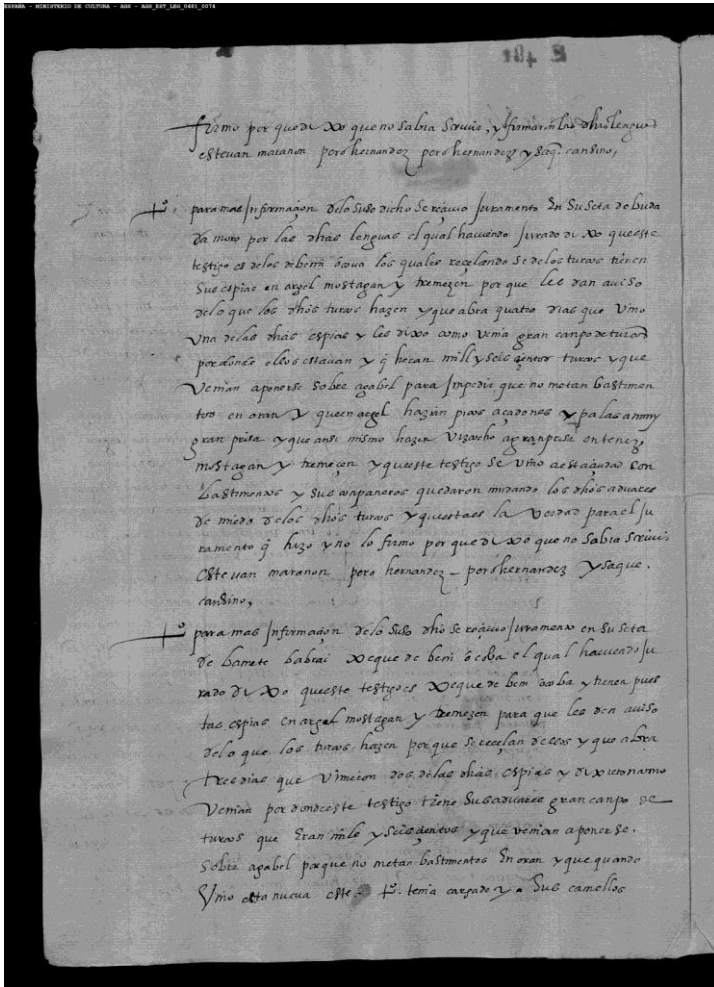 ESPAÑA - MINISTERIO DE CULTURA - AGS - AGS_EST_LEG_0481_0074
E 481
firmo por que dixo que no sabia screvir, y firmaron las dhas lenguas
estevan marañon pero hernandez pero hernandez y saq. cansino,
tº para mas Informaçion delo suso dicho se reçivio Juramento En su seta de buda
moro por las dhas lenguas el qual haviendo Jurado dixo queste
testigo es delos de beni los quales reçelandose delos turcos tienen
sus espias en argel mostagan y tremeçen por que les dan aviso
delo que los dhos turcos hazen y que abra quatro dias que vino
una delas dhas espias y les dixo como venia gran canpo de turcos
por donde ellos estavan y q heran mill y seis çientos turcos y que
venian a ponerse sobre agabel para Impedir que no metan bastimen
tos en oran y que en argel hazian picos açadones y palas a muy
gran prisa y que ansi mismo hazen vizcocho a gran prisa en tenez
mostagan y tremeçen y queste testigo se vino a esta çiudad con
bastimentos y sus conpañeros quedaron mudando los dhos aduares
de miedo delos dhos turcos y questa es la verdad para el Ju
ramento q hizo y no lo firmo por que dixo que no sabia screvir
estevan marañon pero hernandez - pero hernandez y saque.
cansino,
tº para mas Informaçion delo suso dho se reçivio Juramento en su seta
de barrete babrai xeque de beni el qual haviendo Ju
rado dixo queste testigo es xeque de beni y tienen pues
tas espias en argel mostagan y tremezen para que les den aviso
delo que los turcos hazen por que se reçelan dellos y que abra
tres dias que vinieron dos delas dhas espias y dixeron como
venian por donde este testigo tiene sus aduares gran canpo de
turcos que Eran mile y seisçientos y que venian a ponerse.
sobre agabel por que no metan bastimentos En oran y que quando
Vino esta nueva este tº. tenia cargado ya sus camellos